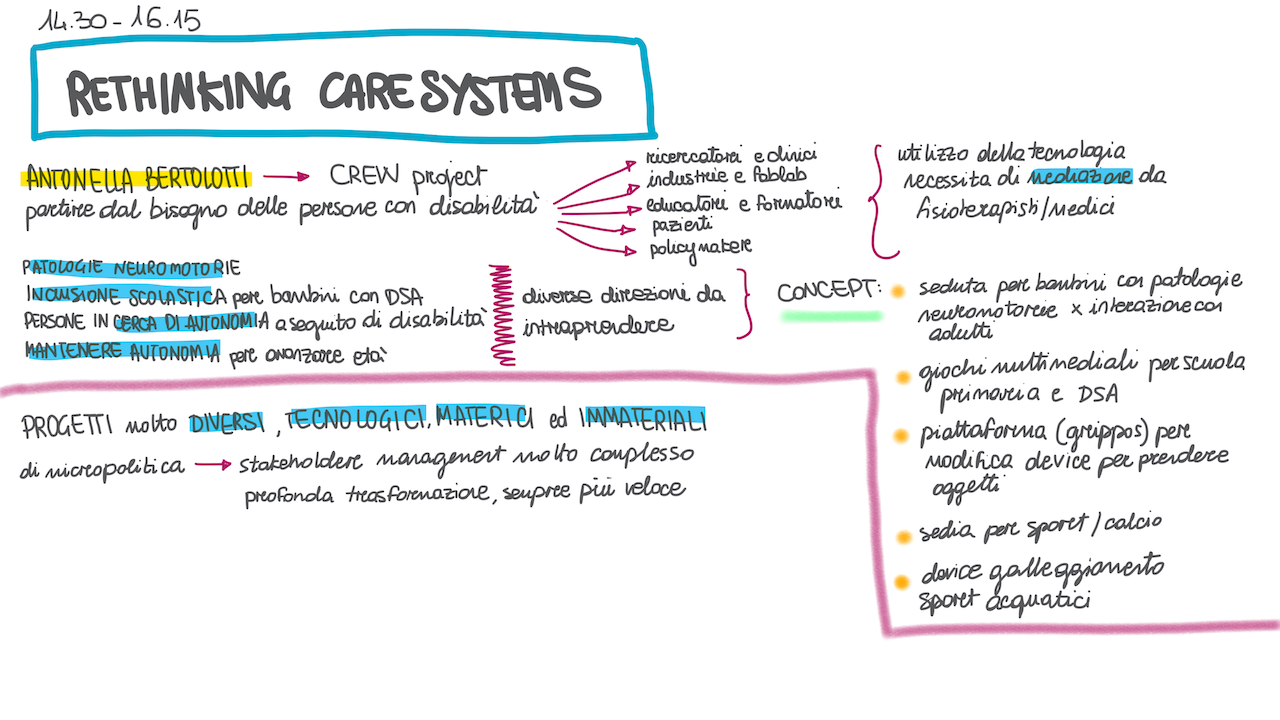 14.30 - 16.15
RETHINKING CARE SYSTEMS
ANTONELLA BERTOLOTTI → CREW project
partire dal bisogno delle persone con disabilità
ricercatori e clinici
industrie e fablab
educatori e formatori
pazienti
policymaker
utilizzo della tecnologia
necessita di mediazione da
fisioterapisti/medici
PATOLOGIE NEUROMOTORIE
INCLUSIONE SCOLASTICA per bambini con DSA
PERSONE IN CERCA DI AUTONOMIA a seguito di disabilità
MANTENERE AUTONOMIA per avanzare età
diverse direzioni da
intraprendere
CONCEPT:
seduta per bambini con patologie
neuromotorie x interazione con
adulti
giochi multimediali per scuola
primaria e DSA
piattaforma (grippos) per
modifica device per prendere
oggetti
sedia per sport/calcio
device galleggiamento
sport acquatici
PROGETTI molto DIVERSI, TECNOLOGICI, MATERICI ed IMMATERIALI
di micropolitica → stakeholder management molto complesso
profonda trasformazione, sempre più veloce